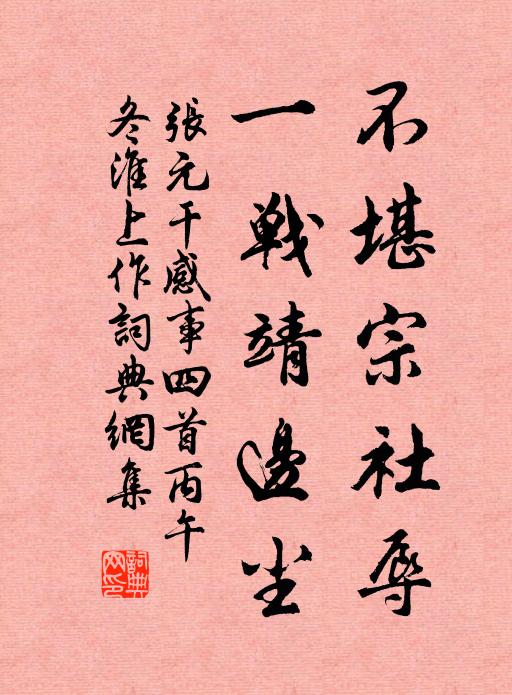 不堪宗社辱
一戰靖邊尘
張元干感事四首丙午
冬淮上作詞典網集
詞典網印